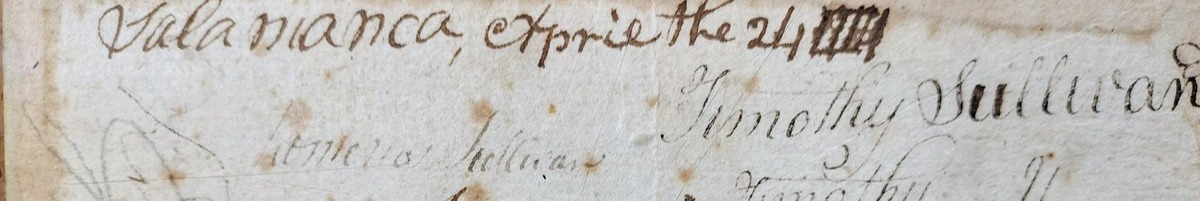 Salamanca, exprie the 24
Timothy Sullivan
Sullivan
Timothy